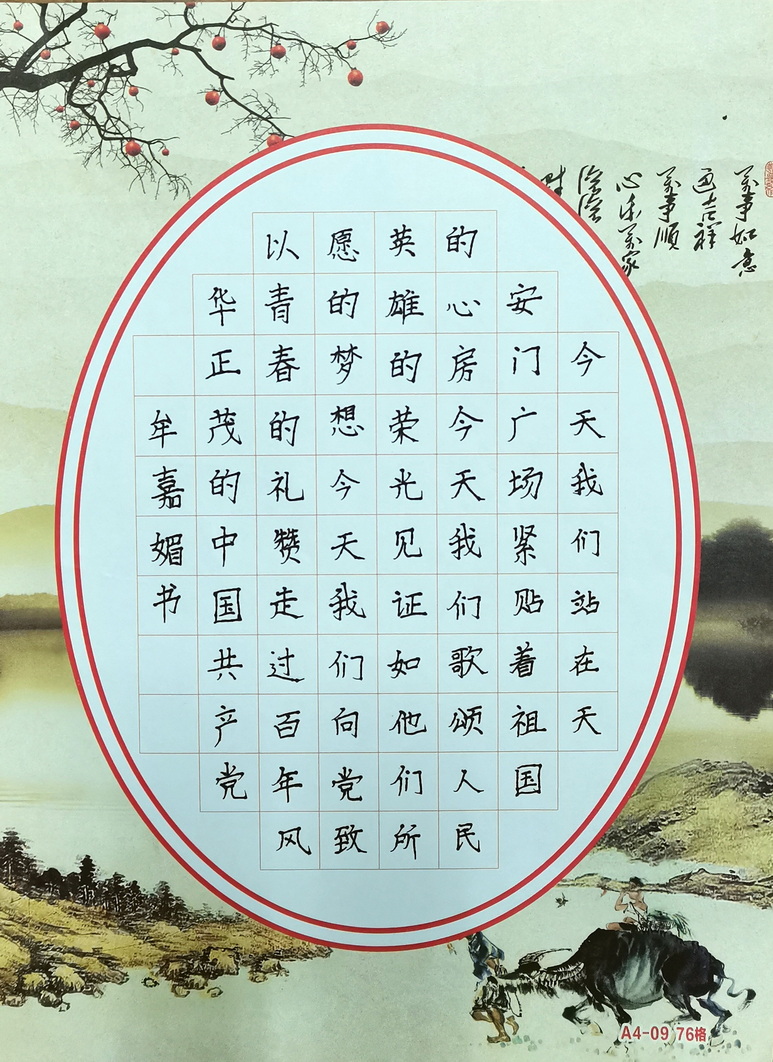 万事如意
吉祥
万事顺
今天我们站在天
安门广场紧贴着祖国
的心房今天我们歌颂人民
英雄的荣光见证如他们所
愿的梦想今天我们向党致
以青春的礼赞走过百年风
华正茂的中国共产党
牟嘉媚书
A4-09 76格